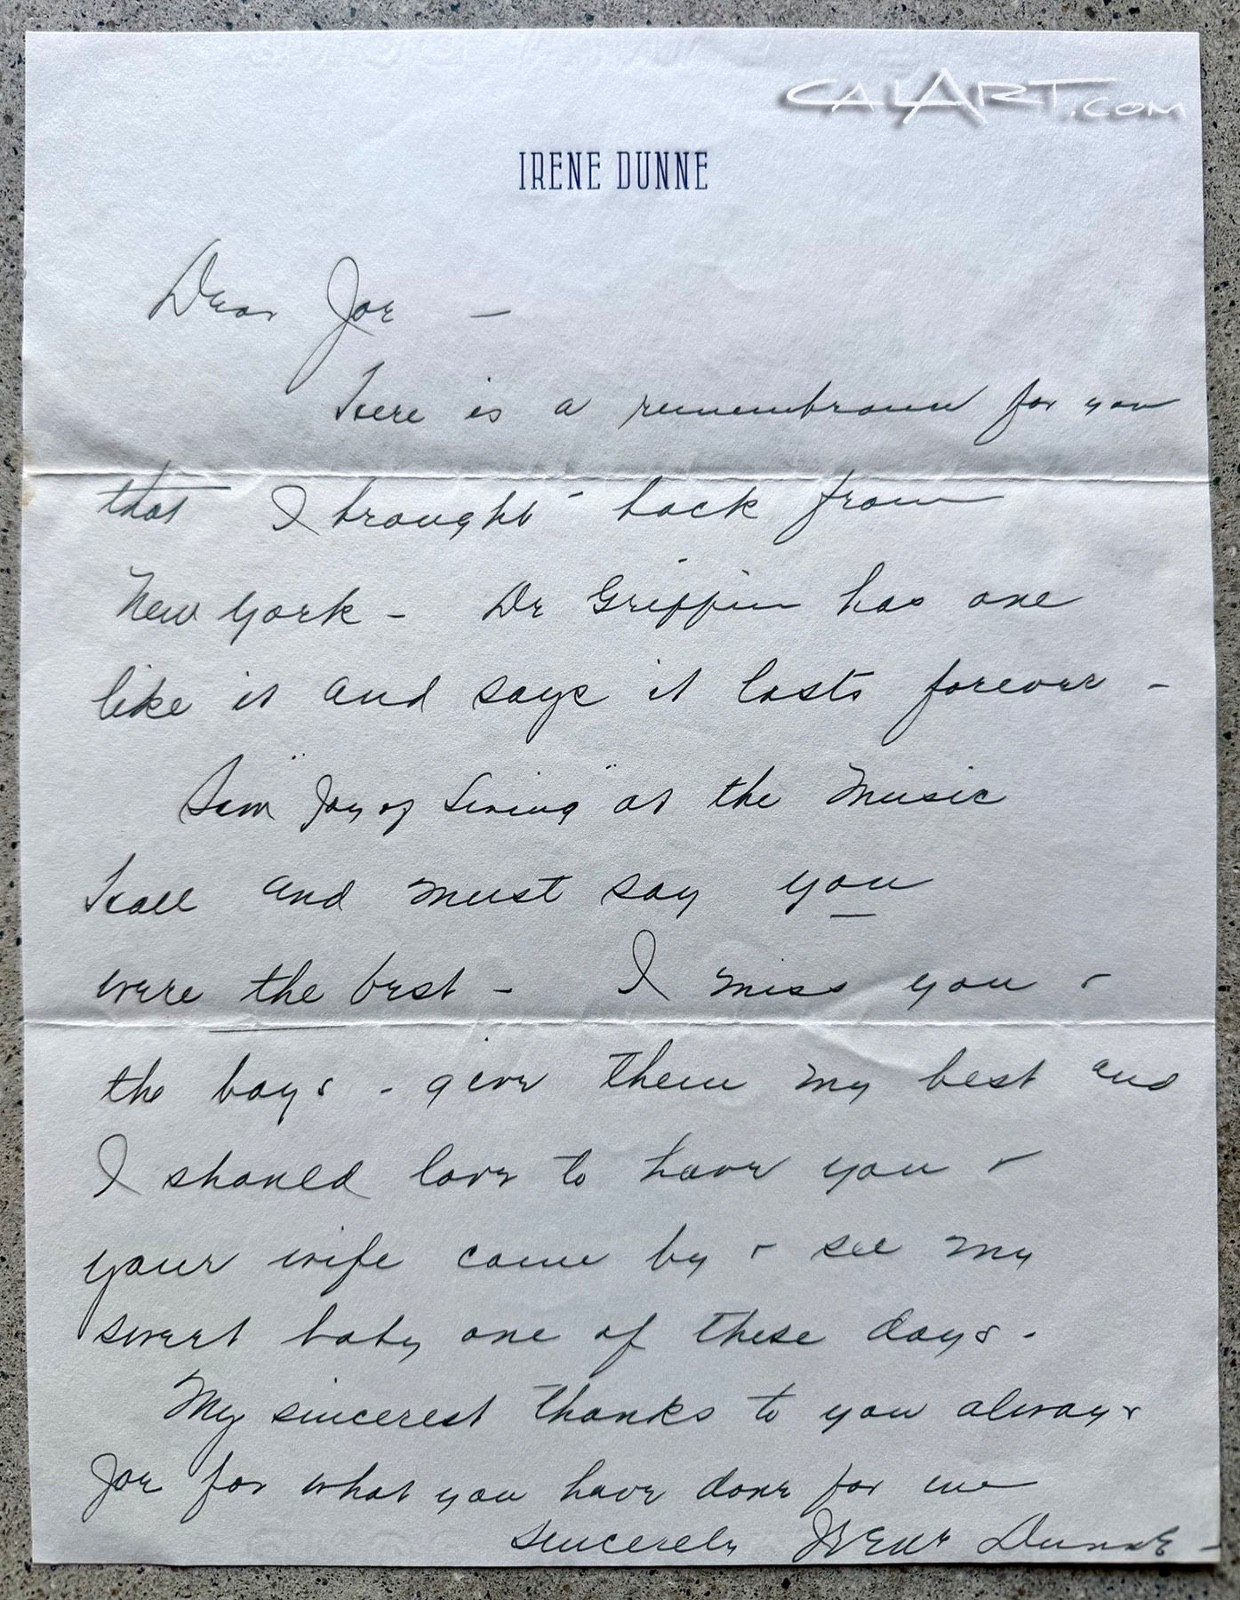 CALART.COM
IRENE DUNNE
Dear Joe –
Here is a remembrance for you
that I brought back from
New York – Dr Griffin has one
like it and says it lasts forever –
Saw "Joy of Living" at the Music
Hall and must say you
were the best – I miss you &
the boys – give them my best and
I should love to have you &
your wife come by & see my
sweet baby one of these days.
My sincerest thanks to you always
Joe for what you have done for me
Sincerely Irene Dunne –